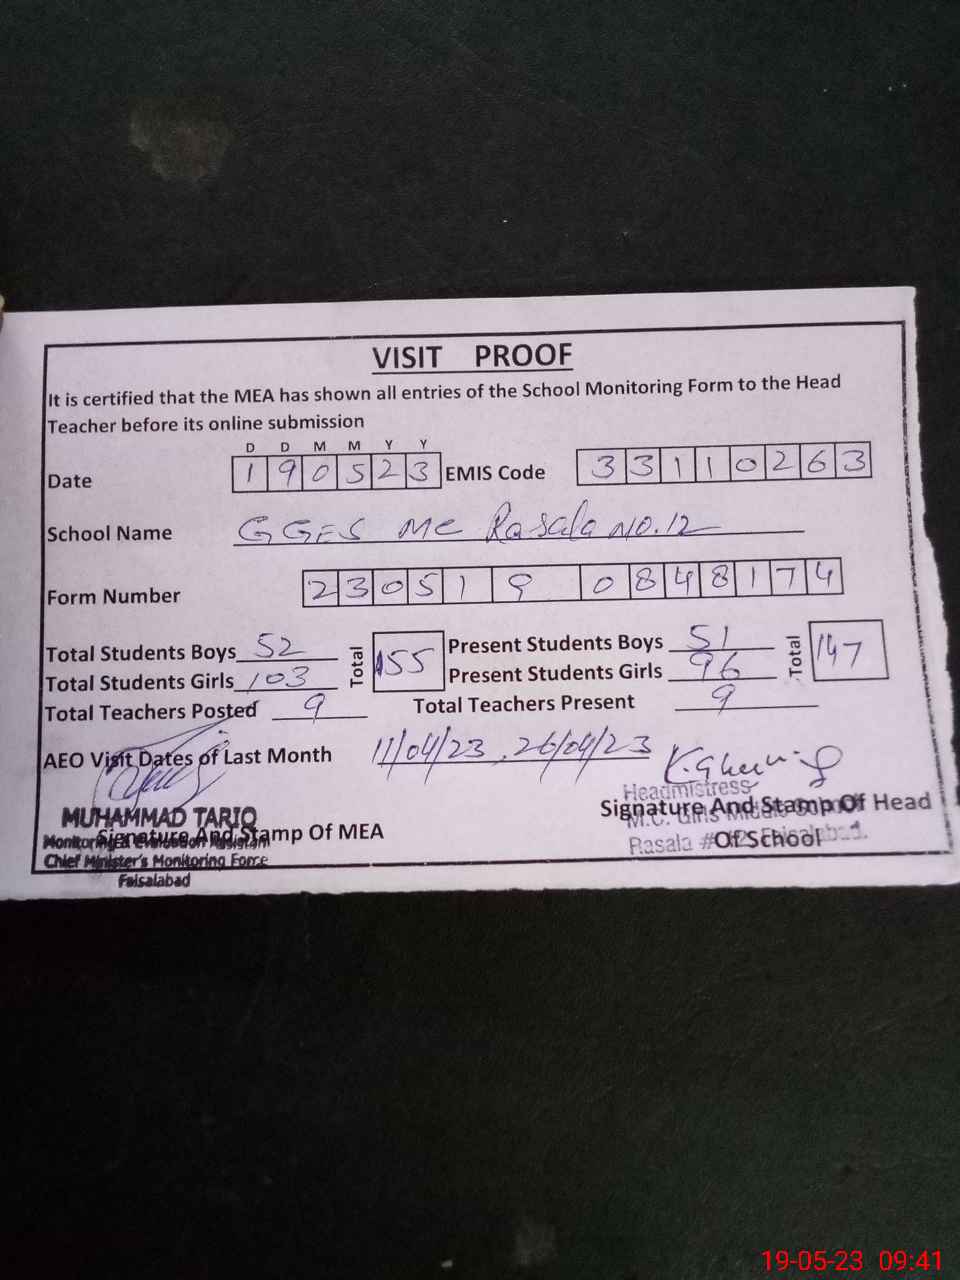 VISIT PROOF
It is certified that the MEA has shown all entries of the School Monitoring Form to the Head
Teacher before its online submission
D D M M Y Y
Date 1 9 0 5 2 3 EMIS Code 3 3 1 1 0 2 6 3
School Name GGES MC Rasala NO.12
Form Number 2 3 0 5 1 9 0 8 4 8 1 7 4
Total Students Boys 52 Total 155 Present Students Boys 51 Total 147
Total Students Girls 103 Present Students Girls 96
Total Teachers Posted 9 Total Teachers Present 9
AEO Visit Dates of Last Month 11/04/23, 26/04/23
Headmistress
MUHAMMAD TARIQ
Signature And Stamp Of MEA Signature And Stamp Of Head
Of School
M.C. Girls Middle
Rasala # Faisalabad.
Monitoring & Evaluation Assistant
Chief Minister's Monitoring Force
Faisalabad
19-05-23 09:41